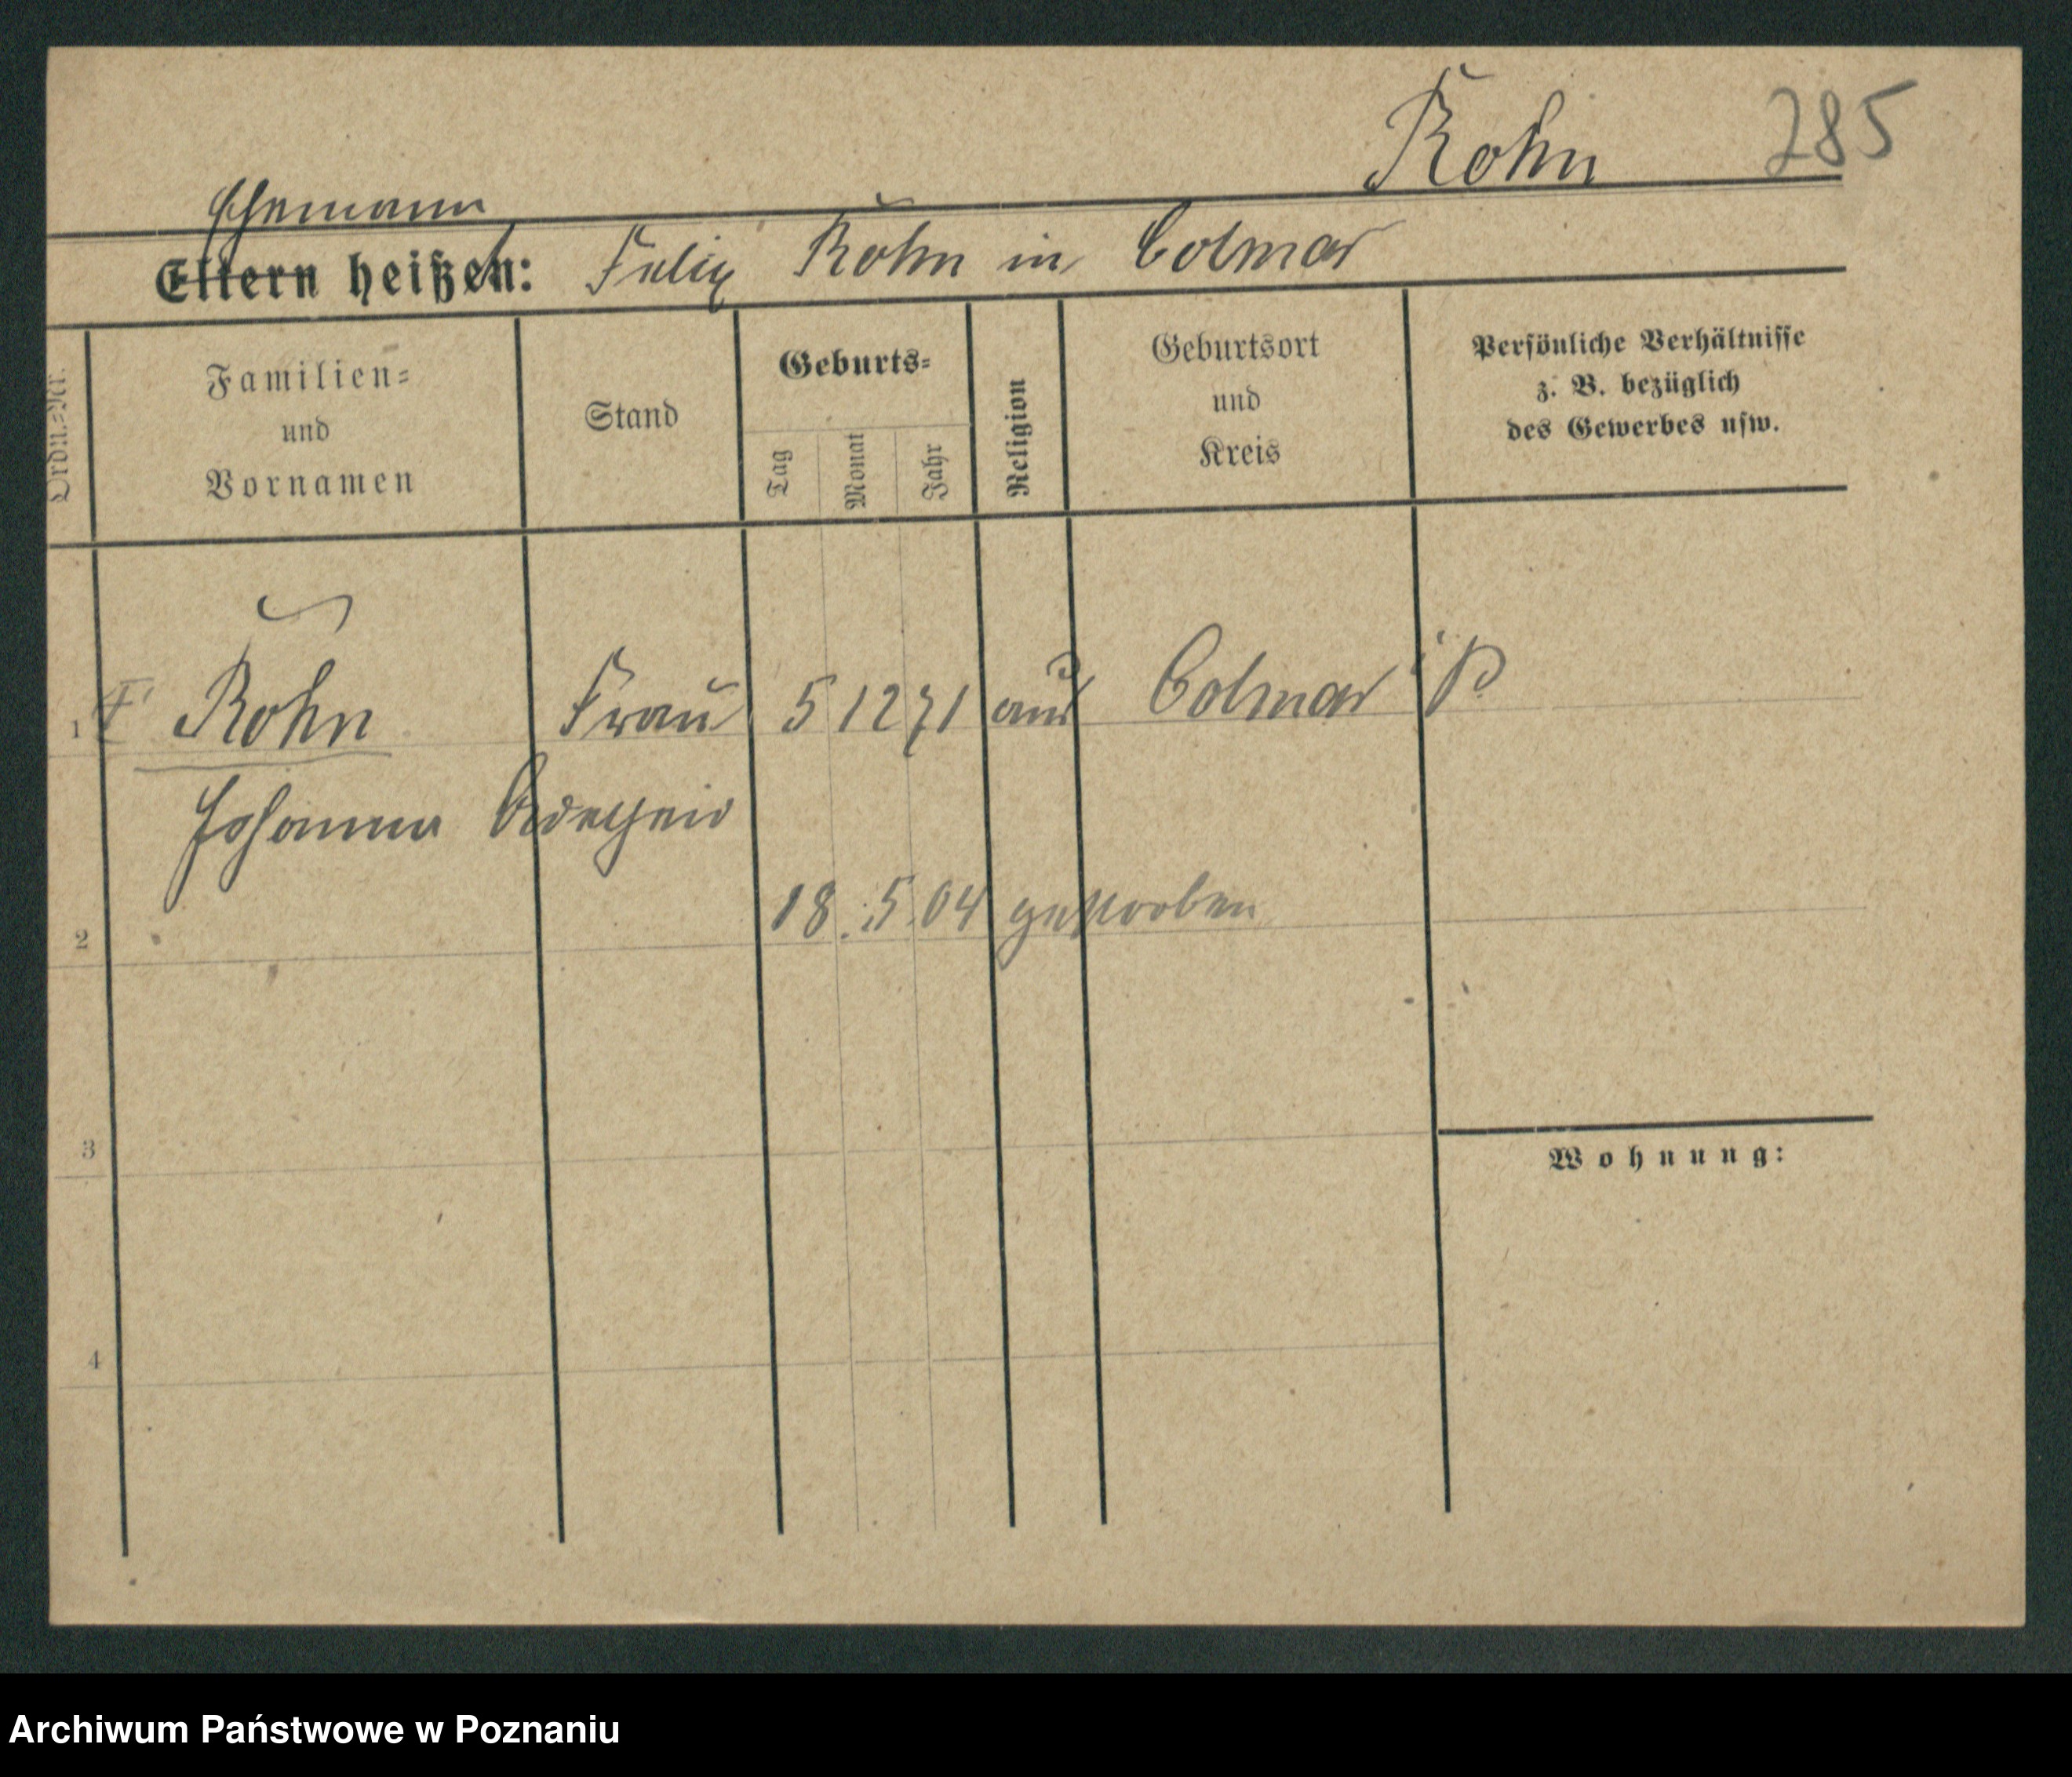 Rohn 285
Ehemann
Eltern heißen: Felix Rohn in Colmar
Ordn.=Nr.
Familien=
und
Vornamen
Stand
Geburts=
Tag
Monat
Jahr
Religion
Geburtsort
und
Kreis
Persönliche Verhältnisse
z. B. bezüglich
des Gewerbes usw.
1 Rohn Frau 5 12 71 aus Colmar i P
Johanna Adelheid
2 18. 5. 04 gestorben
3
Wohnung:
4
Archiwum Państwowe w Poznaniu